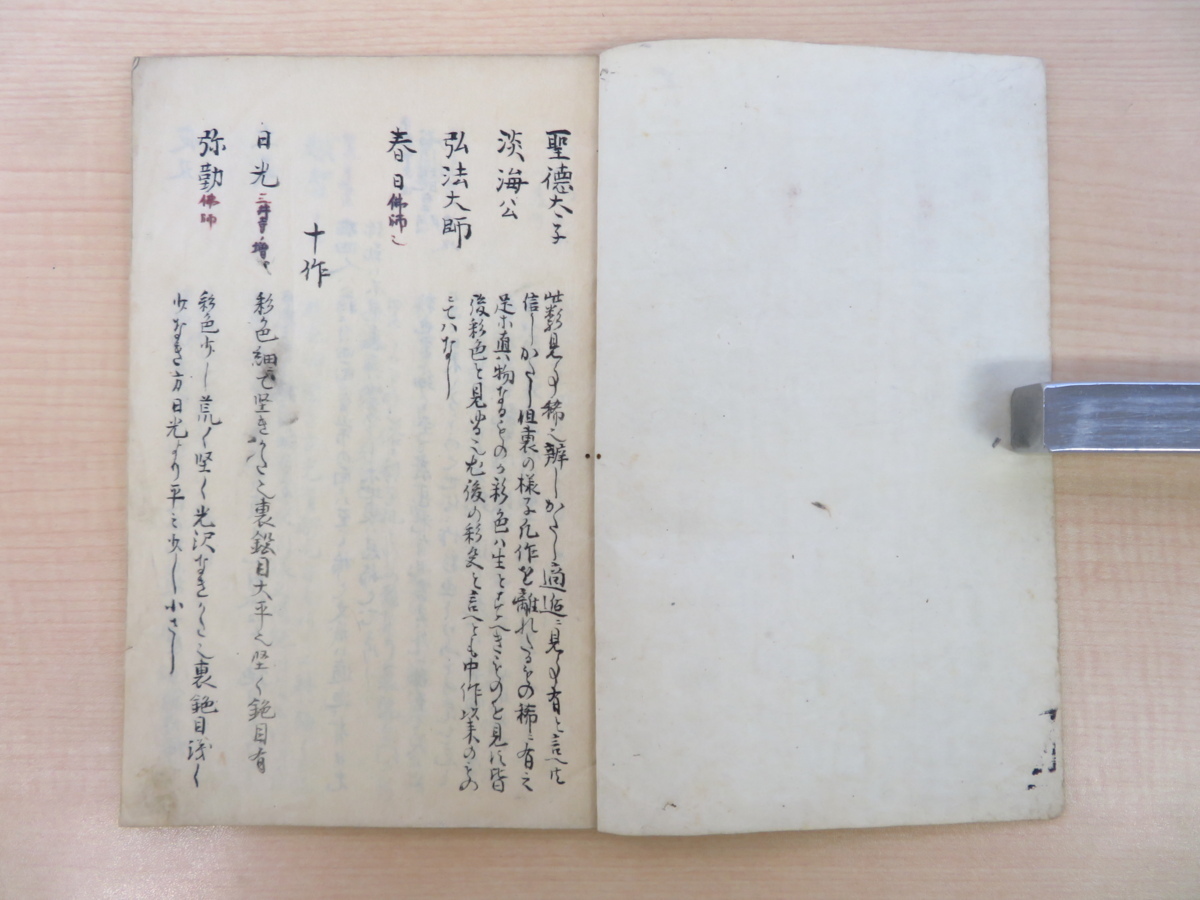 聖德太子
淡海公
弘法大師
春日佛師也
此類見る事稀也辨しかたし適逅ニ見る事有と言へ共
信しかたし但裏の様子凡作を離れたるもの稀ニ有之
是等真物なるものか彩色ハ生とすへきものと見へ皆
後彩色と見ゆる也尤後の彩色と言へとも中作以来のもの
ニてハなし
十作
日光 三井寺ノ増也
彩色細かニて堅きかた也裏鉋目大平也堅く鉋目有
弥勒佛師
彩色少し荒く堅く光沢なきかた也裏鉋目浅く
少なき方日光より平ニ少しく小さし